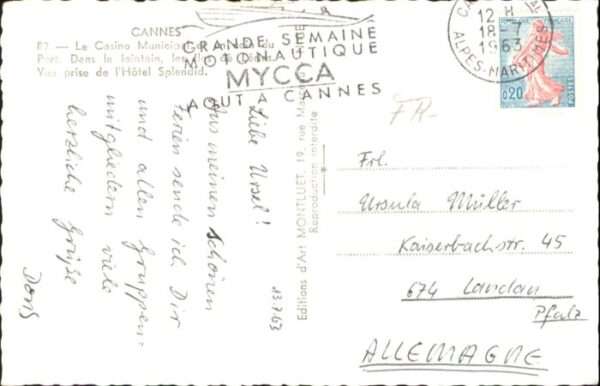 CANNES
87. - Le Casino Municipal
Port. Dans le lointain, les
Vue prise de l'Hôtel Splendid.
GRANDE SEMAINE
MOTONAUTIQUE
MYCCA
AOUT A CANNES
12 H
18-7
1963
ALPES-MARITIMES
0,20
POSTES
FR-
Editions d'Art MONTLUET, 19, rue
Reproduction interdite
13.7.63
Liebe Ursel!
Aus meinen schönen
Ferien sende ich Dir
und allen Gruppen-
mitgliedern viele
herzliche Grüße
Doris
Frl.
Ursula Müller
Kaiserbachstr. 45
674 Landau
Pfalz
ALLEMAGNE